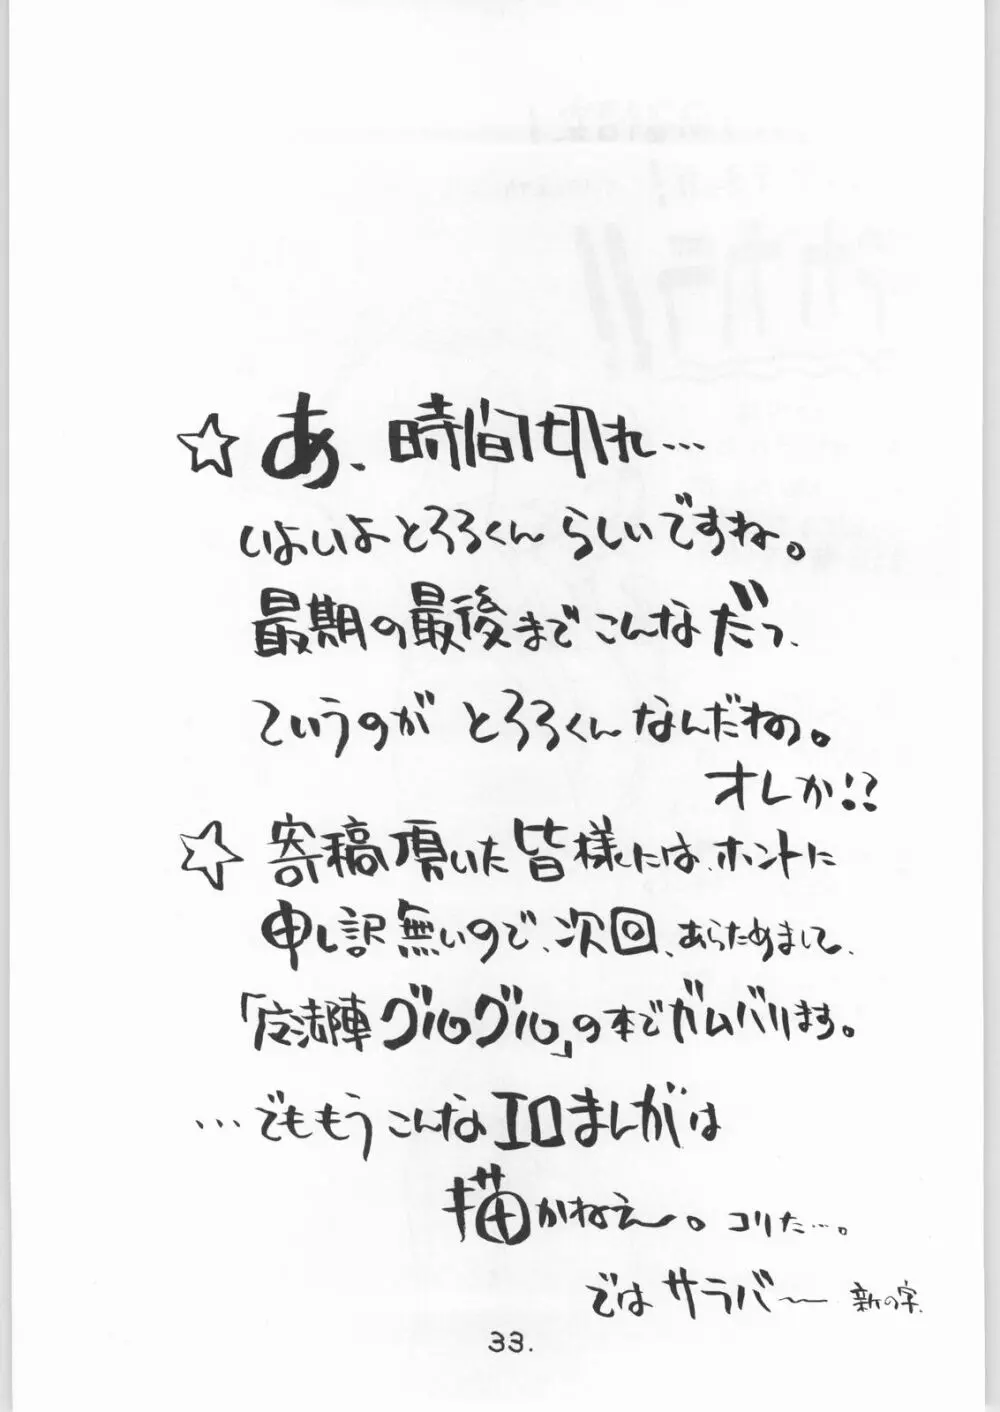 ☆あ、時間切れ…
いよいよとろろくんらしいですね。
最期の最後までこんなだっ、
ていうのがとろろくんなんだねっ。
オレか!?
☆寄稿頂いた皆様にはホントに
申し訳無いので、次回、あらためまして、
「魔法陣グルグル」の本でガムバリます。
…でももうこんなエロまんがは
描かねえ〜。コリた…。
ではサラバ〜 新の字.
33.